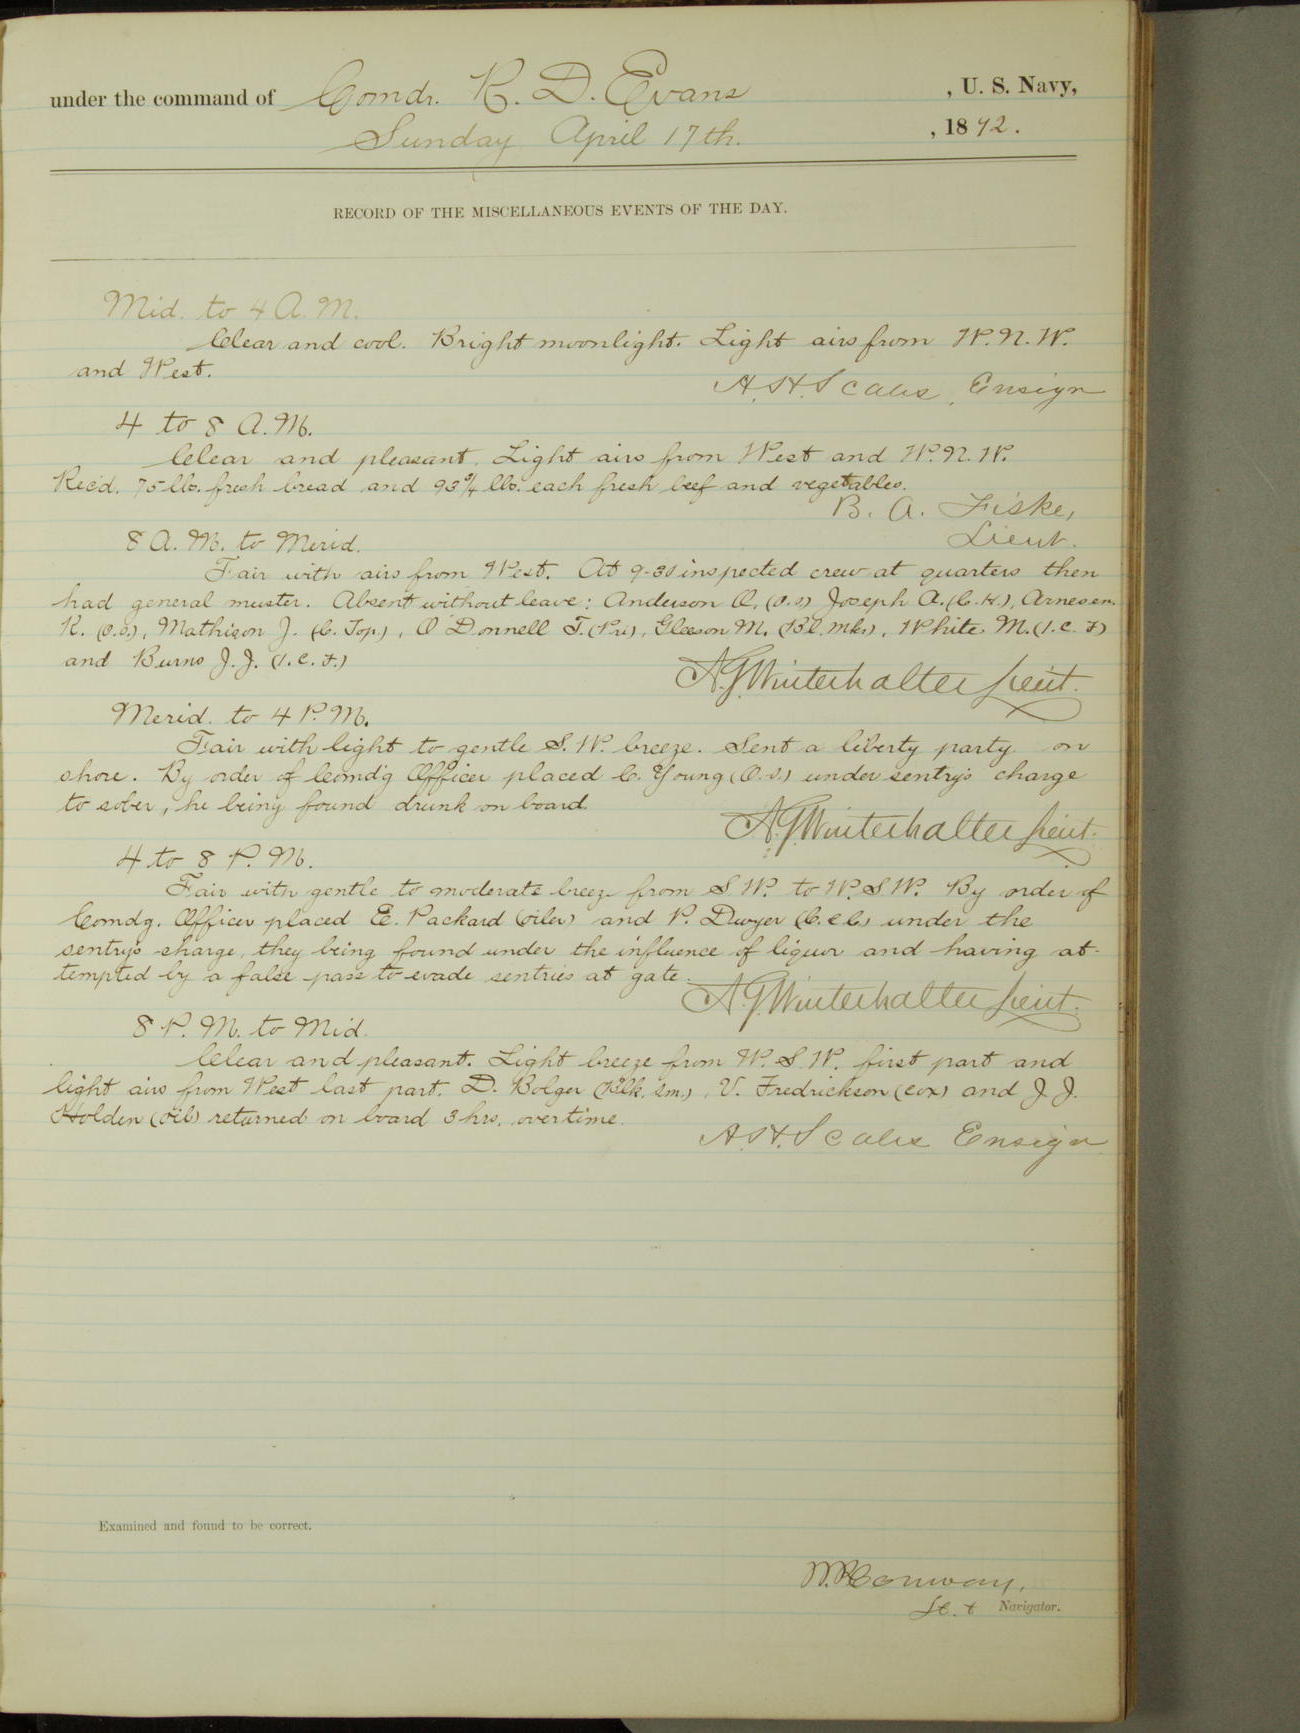 under the command of Comdr. R. D. Evans, U. S. Navy,
Sunday April 17th., 1892.
RECORD OF THE MISCELLANEOUS EVENTS OF THE DAY.
Mid. to 4 A. M.
Clear and cool. Bright moonlight. Light airs from W. N. W.
and West.
A. H. Scales, Ensign
4 to 8 A. M.
Clear and pleasant. Light airs from West and W. N. W.
Rec'd. 75 lbs. fresh bread and 93 3/4 lbs. each fresh beef and vegetables.
B. A. Fiske,
Lieut.
8 A. M. to Merid.
Fair with airs from West. At 9-30 inspected crew at quarters then
had general muster. Absent without leave: Anderson O. (O.S) Joseph A. (C.H.), Arnesen
K. (O.S.), Mathison J. (C. Top.), O'Donnell T. (Pri), Gleeson M. (Bl. Mkr), White. M. (1. C. F)
and Burns J. J. (1. C. F.)
A. G. Winterhalter Lieut.
Merid. to 4 P. M.
Fair with light to gentle S. W. breeze. Sent a liberty party on
shore. By order of Comd'g Officer placed C. Young (O.S.) under sentry's charge
to sober, he being found drunk on board.
A. G. Winterhalter Lieut.
4 to 8 P. M.
Fair with gentle to moderate breeze from S W. to W. S W. By order of
Comdg. Officer placed E. Packard (oiler) and P. Dwyer under the
sentry's charge, they being found under the influence of liquor and having at-
tempted by a false pass to evade sentries at gate.
A. G. Winterhalter Lieut.
8 P. M. to Mid.
Clear and pleasant. Light breeze from W. S. W. first part and
light airs from West last part. D. Bolger (Blk. Sm.), V. Fredrickson (cox) and J. J.
Holden (Oil) returned on board 3 hrs. overtime.
A. H. Scales Ensign
Examined and found to be correct.
W. P. Conway,
Lt. & Navigator.